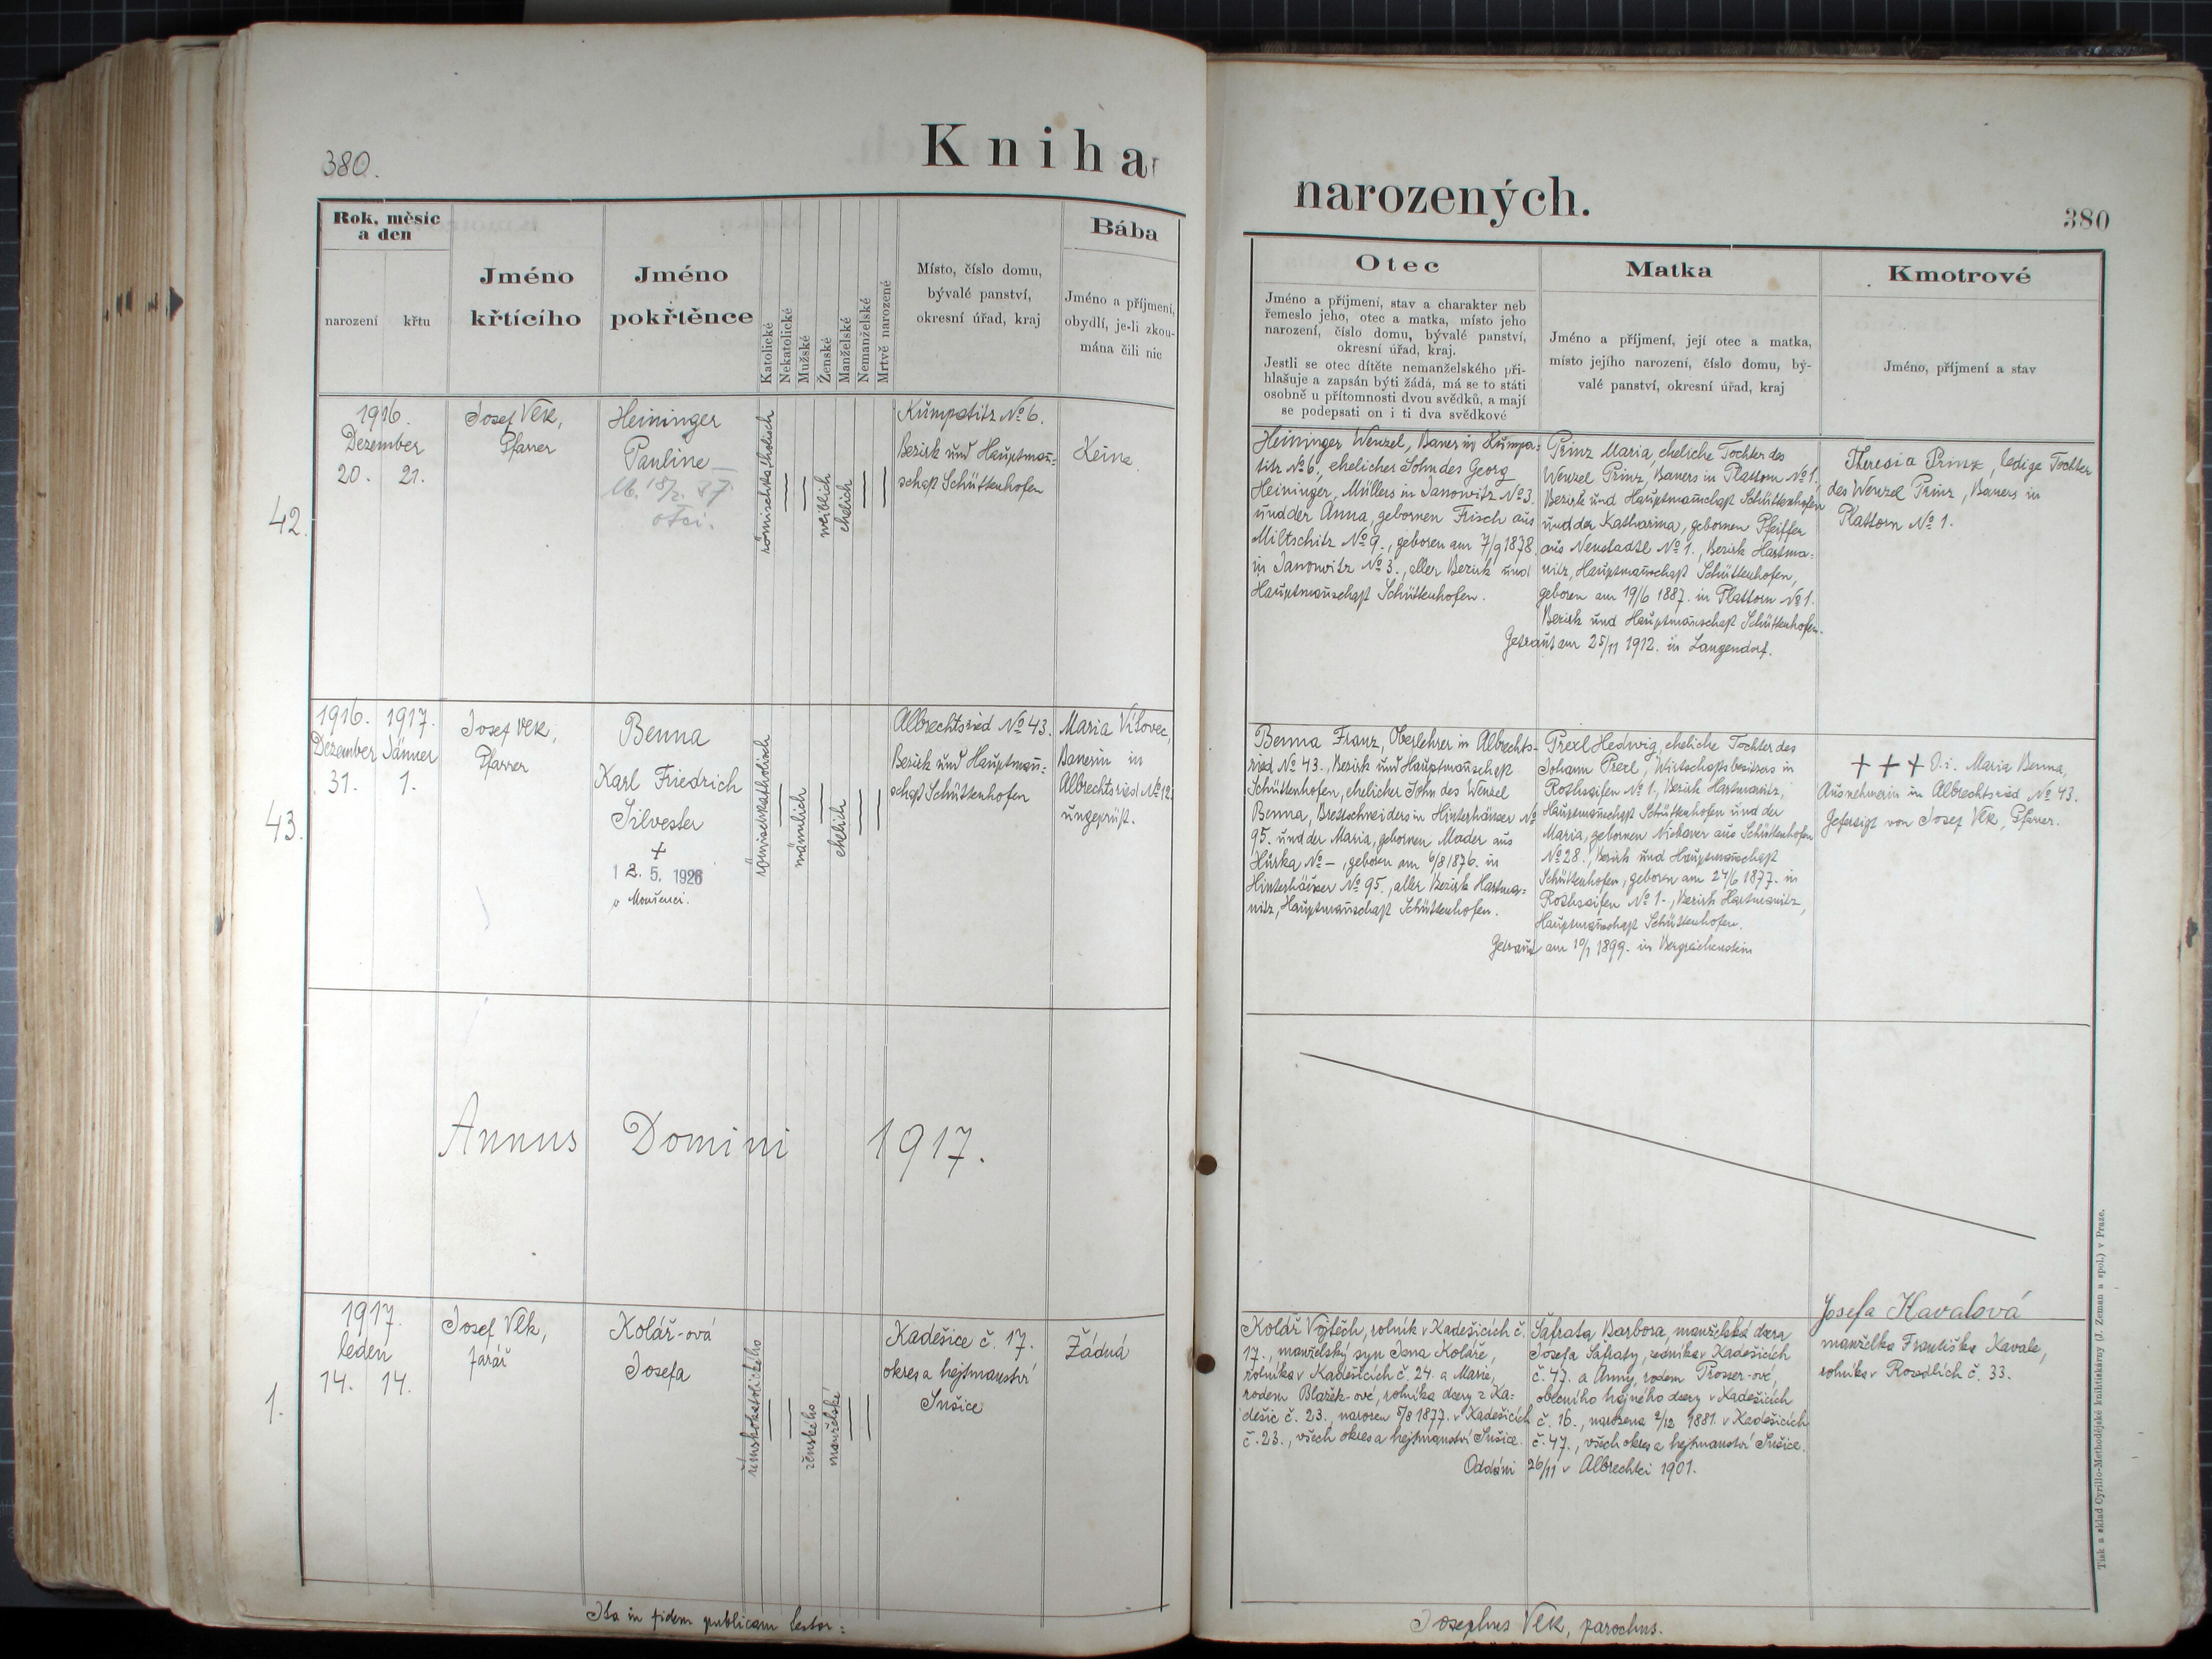 380.
Kniha
Rok, měsíc
a den
narození
křtu
Jméno
křtícího
Jméno
pokřtěnce
Katolické
Nekatolické
Mužské
Ženské
Manželské
Nemanželské
Mrtvě narozené
Místo, číslo domu,
bývalé panství,
okresní úřad, kraj
Bába
Jméno a příjmení,
obydlí, je-li zkou-
mána čili nic
42.
1916.
Dezember
20. 21.
Josef Vlk,
Pfarrer
Heininger
Pauline
18/2. 37.
otci.
römischkatholisch
weiblich
ehelich
Kumpatitz № 6.
Bezirk und Hauptman̄-
schaft Schüttenhofen
Keine
43.
1916. 1917.
Dezember Jänner
31. 1.
Josef Vlk,
Pfarrer
Benna
Karl Friedrich
Silvester
+
12. 5. 1926
v Mouřenci.
römischkatholisch
männlich
ehelich
Albrechtsried № 43.
Bezirk und Hauptman̄-
schaft Schüttenhofen
Maria Vítovec,
Bauerin in
Albrechtsried № 12.
ungeprüft.
Annus Domini 1917.
1.
1917.
leden
14. 14.
Josef Vlk,
farář
Kolář-ová
Josefa
římskokatolického
ženského
manželské
Kadešice č. 17.
okres a hejtmanství
Sušice
Žádná
Ita in fidem publicam testor:
narozených.
380
Otec
Jméno a příjmení, stav a charakter neb
řemeslo jeho, otec a matka, místo jeho
narození, číslo domu, bývalé panství,
okresní úřad, kraj.
Jestli se otec dítěte nemanželského při-
hlašuje a zapsán býti žádá, má se to státi
osobně u přítomnosti dvou svědků, a mají
se podepsati on i ti dva svědkové
Matka
Jméno a příjmení, její otec a matka,
místo jejího narození, číslo domu, bý-
valé panství, okresní úřad, kraj
Kmotrové
Jméno, příjmení a stav
Heininger Wenzel, Bauer in Kumpa-
titz № 6, ehelicher Sohn des Georg
Heininger, Müllers in Janowitz № 3.
und der Anna, gebornen Frisch aus
Miltschitz № 9., geboren am 7/9 1878.
in Janowitz № 3., aller Bezirk und
Hauptman̄schaft Schüttenhofen.
Prinz Maria, eheliche Tochter des
Wenzel Prinz, Bauers in Plattorn № 1.
Bezirk und Hauptman̄schaft Schüttenhofen
und der Katharina, gebornen Pfeiffer
aus Neustadtl № 1., Bezirk Hartma-
nitz, Hauptman̄schaft Schüttenhofen,
geboren am 19/6 1887. in Plattorn № 1.
Bezirk und Hauptman̄schaft Schüttenhofen.
Getraut am 25/11 1912. in Langendorf.
Theresia Prinz, ledige Tochter
des Wenzel Prinz, Bauers in
Plattorn № 1.
Benna Franz, Oberlehrer in Albrechts-
ried № 43., Bezirk und Hauptman̄schaft
Schüttenhofen, ehelicher Sohn des Wenzel
Benna, Brettschneiders in Hinterhäuser №
95. und der Maria, gebornen Mader aus
Hurka № –, geboren am 6/8 1876. in
Hinterhäuser № 95., aller Bezirk Hartma-
nitz, Hauptman̄schaft Schüttenhofen.
Prexl Hedwig, eheliche Tochter des
Johann Prexl, Wirtschaftsbesitzers in
Rothsaifen № 1., Bezirk Hartmanitz,
Hauptman̄schaft Schüttenhofen und der
Maria, gebornen aus Schüttenhofen
№ 28., Bezirk und Hauptman̄schaft
Schüttenhofen, geboren am 24/6 1877. in
Rothsaifen № 1., Bezirk Hartmanitz,
Hauptman̄schaft Schüttenhofen.
Getraut am 10/1 1899. in Bergreichenstein
+ + + d. i. Maria Benna,
Ausnehmerin in Albrechtsried № 43.
Gefertigt von Josef Vlk, Pfarrer.
Kolář Vojtěch, rolník v Kadešicích č.
17., manželský syn Jana Koláře,
rolníka v Kadešicích č. 24. a Marie,
rodem Blažek-ové, rolníka dcery z Ka-
dešic č. 23., narozen 5/8 1877. v Kadešicích
č. 23., všech okres a hejtmanství Sušice.
Šafrata Barbora, manželská dcera
Josefa Šafraty, zedníka v Kadešicích
č. 47. a Anny, rodem Prosser-ové,
obecního hajného dcery v Kadešicích
č. 16., narozena 2/12 1881. v Kadešicích
č. 47., všech okres a hejtmanství Sušice.
Oddáni 26/11 v Albrechtci 1901.
Josefa Kavalová
manželka Františka Kavale,
rolníka v Rozedlích č. 33.
Tisk a sklad Cyrillo-Methodějské knihtiskárny (J. Zeman a spol.) v Praze.
Josephus Vlk, parochus.